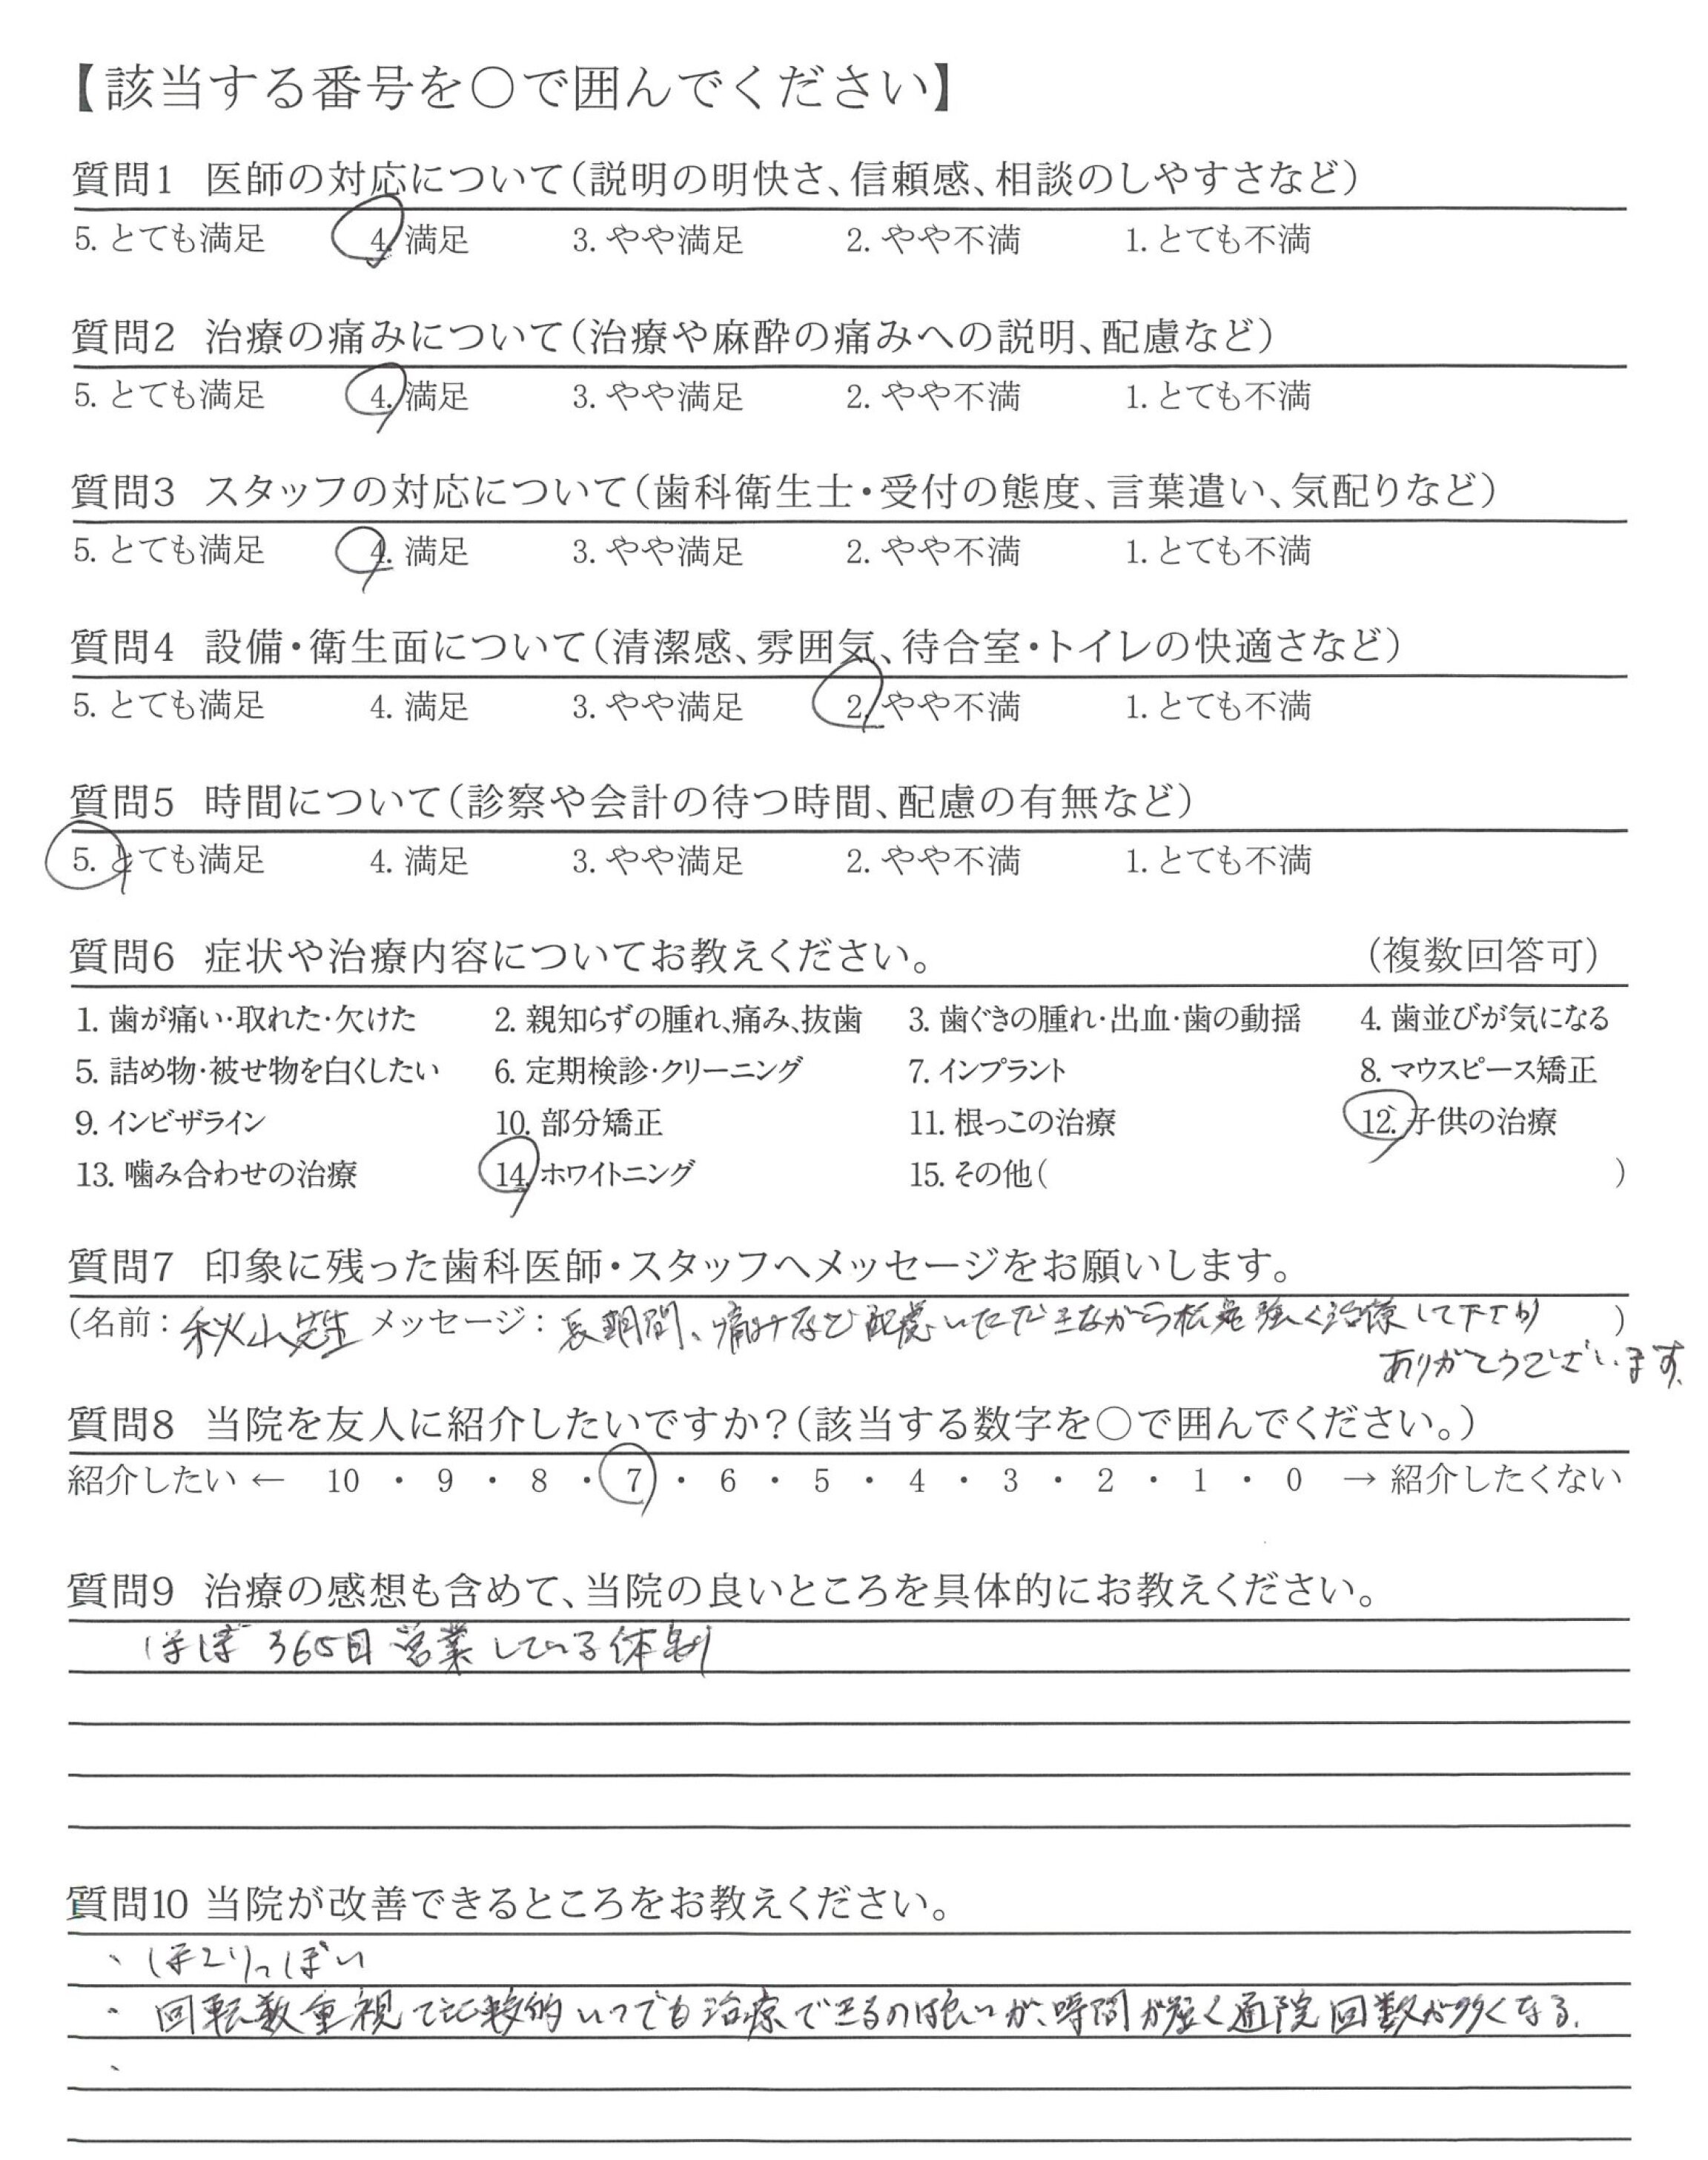 【該当する番号を○で囲んでください】
質問1 医師の対応について(説明の明快さ、信頼感、相談のしやすさなど)
5. とても満足 4. 満足 3. やや満足 2. やや不満 1. とても不満
質問2 治療の痛みについて(治療や麻酔の痛みへの説明、配慮など)
5. とても満足 4. 満足 3. やや満足 2. やや不満 1. とても不満
質問3 スタッフの対応について(歯科衛生士・受付の態度、言葉遣い、気配りなど)
5. とても満足 4. 満足 3. やや満足 2. やや不満 1. とても不満
質問4 設備・衛生面について(清潔感、雰囲気、待合室・トイレの快適さなど)
5. とても満足 4. 満足 3. やや満足 2. やや不満 1. とても不満
質問5 時間について(診察や会計の待つ時間、配慮の有無など)
5. とても満足 4. 満足 3. やや満足 2. やや不満 1. とても不満
質問6 症状や治療内容についてお教えください。 (複数回答可)
1. 歯が痛い・取れた・欠けた 2. 親知らずの腫れ、痛み、抜歯 3. 歯ぐきの腫れ・出血・歯の動揺 4. 歯並びが気になる
5. 詰め物・被せ物を白くしたい 6. 定期検診・クリーニング 7. インプラント 8. マウスピース矯正
9. インビザライン 10. 部分矯正 11. 根っこの治療 12. 子供の治療
13. 噛み合わせの治療 14. ホワイトニング 15. その他( )
質問7 印象に残った歯科医師・スタッフへメッセージをお願いします。
(名前: 秋山先生 メッセージ: 長期間、痛みなど配慮いただきながら根気強く治療して下さり )
ありがとうございます。
質問8 当院を友人に紹介したいですか?(該当する数字を○で囲んでください。)
紹介したい ← 10 ・ 9 ・ 8 ・ 7 ・ 6 ・ 5 ・ 4 ・ 3 ・ 2 ・ 1 ・ 0 → 紹介したくない
質問9 治療の感想も含めて、当院の良いところを具体的にお教えください。
ほぼ365日営業している体制
質問10 当院が改善できるところをお教えください。
・ほこりっぽい
・回転数重視で比較的いつでも治療できるのは良いが、時間が短く通院回数が多くなる。
・